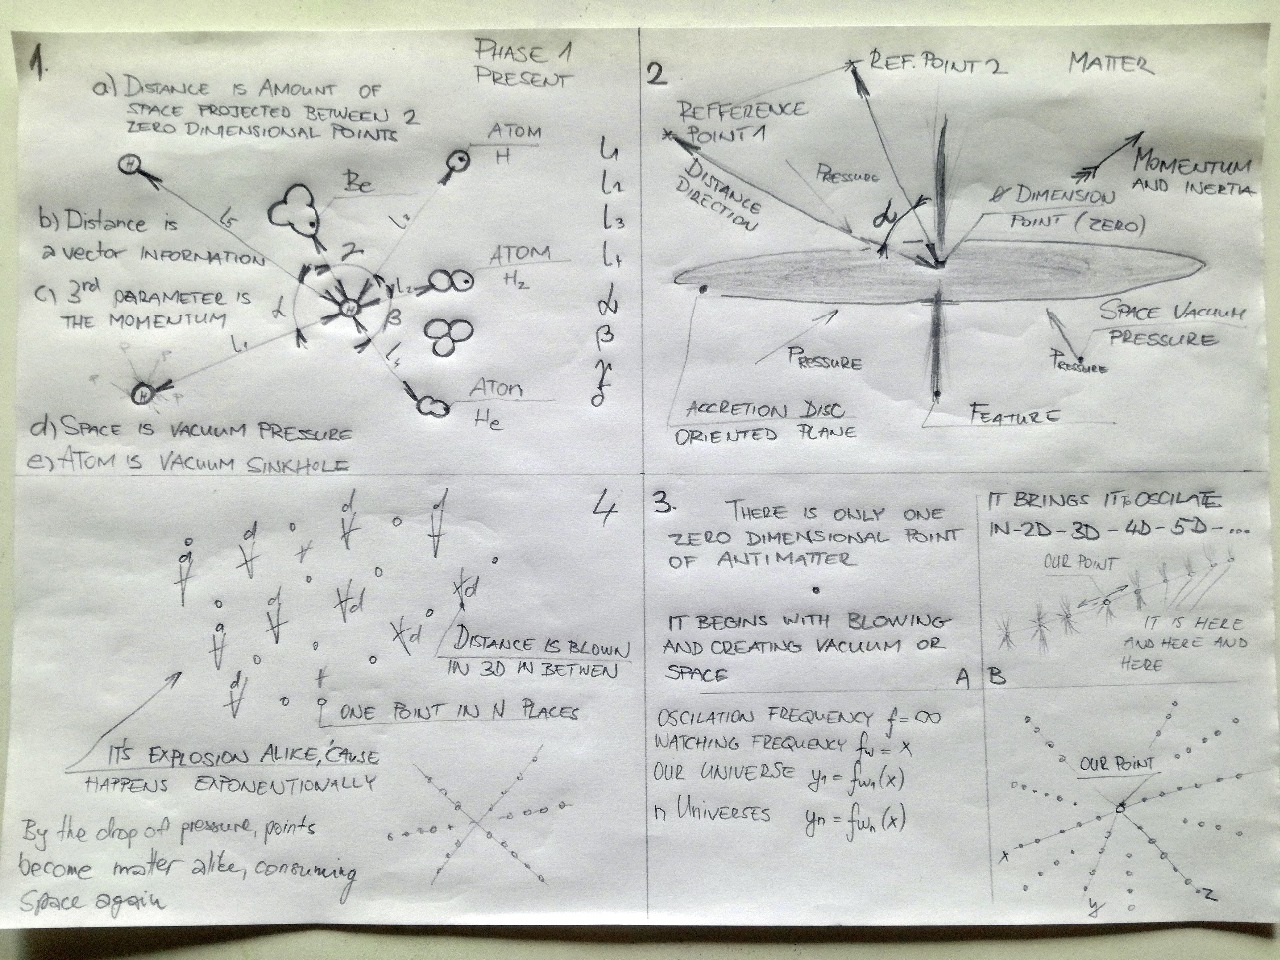 1.
PHASE 1
PRESENT
a) DISTANCE IS AMOUNT OF
SPACE PROJECTED BETWEEN 2
ZERO DIMENSIONAL POINTS
ATOM
H
H
Be
b) Distance is
a vector INFORMATION
L5
ATOM
H2
c) 3rd PARAMETER IS
THE MOMENTUM
L2
H
α
β
γ
L1
H
P
P
P
ATOM
He
L1
L2
L3
L4
α
β
γ
δ
d) SPACE IS VACUUM PRESSURE
e) ATOM IS VACUUM SINKHOLE
2
REF. POINT 2
MATTER
REFFERENCE
POINT 1
PRESSURE
DISTANCE
DIRECTION
α
MOMENTUM
AND INERTIA
0 DIMENSION
POINT (ZERO)
SPACE VACUUM
PRESSURE
PRESSURE
PRESSURE
ACCRETION DISC
ORIENTED PLANE
FEATURE
3.
THERE IS ONLY ONE
ZERO DIMENSIONAL POINT
OF ANTIMATTER
IT BEGINS WITH BLOWING
AND CREATING VACUUM OR
SPACE
A
IT BRINGS IT TO OSCILATE
IN-2D-3D-4D-5D-...
OUR POINT
IT IS HERE
AND HERE AND
HERE
B
OSCILATION FREQUENCY f=∞
WATCHING FREQUENCY fw = x
OUR UNIVERSE y1 = fw1(x)
n UNIVERSES yn = fwn(x)
OUR POINT
x
y
z
4
d
d
d
d
d
d
d
d
d
d
DISTANCE IS BLOWN
IN 3D IN BETWEN
ONE POINT IN N PLACES
IT'S EXPLOSION ALIKE, 'CAUSE
HAPPENS EXPONENTIONALLY
By the drop of pressure, points
become matter alike, consuming
space again